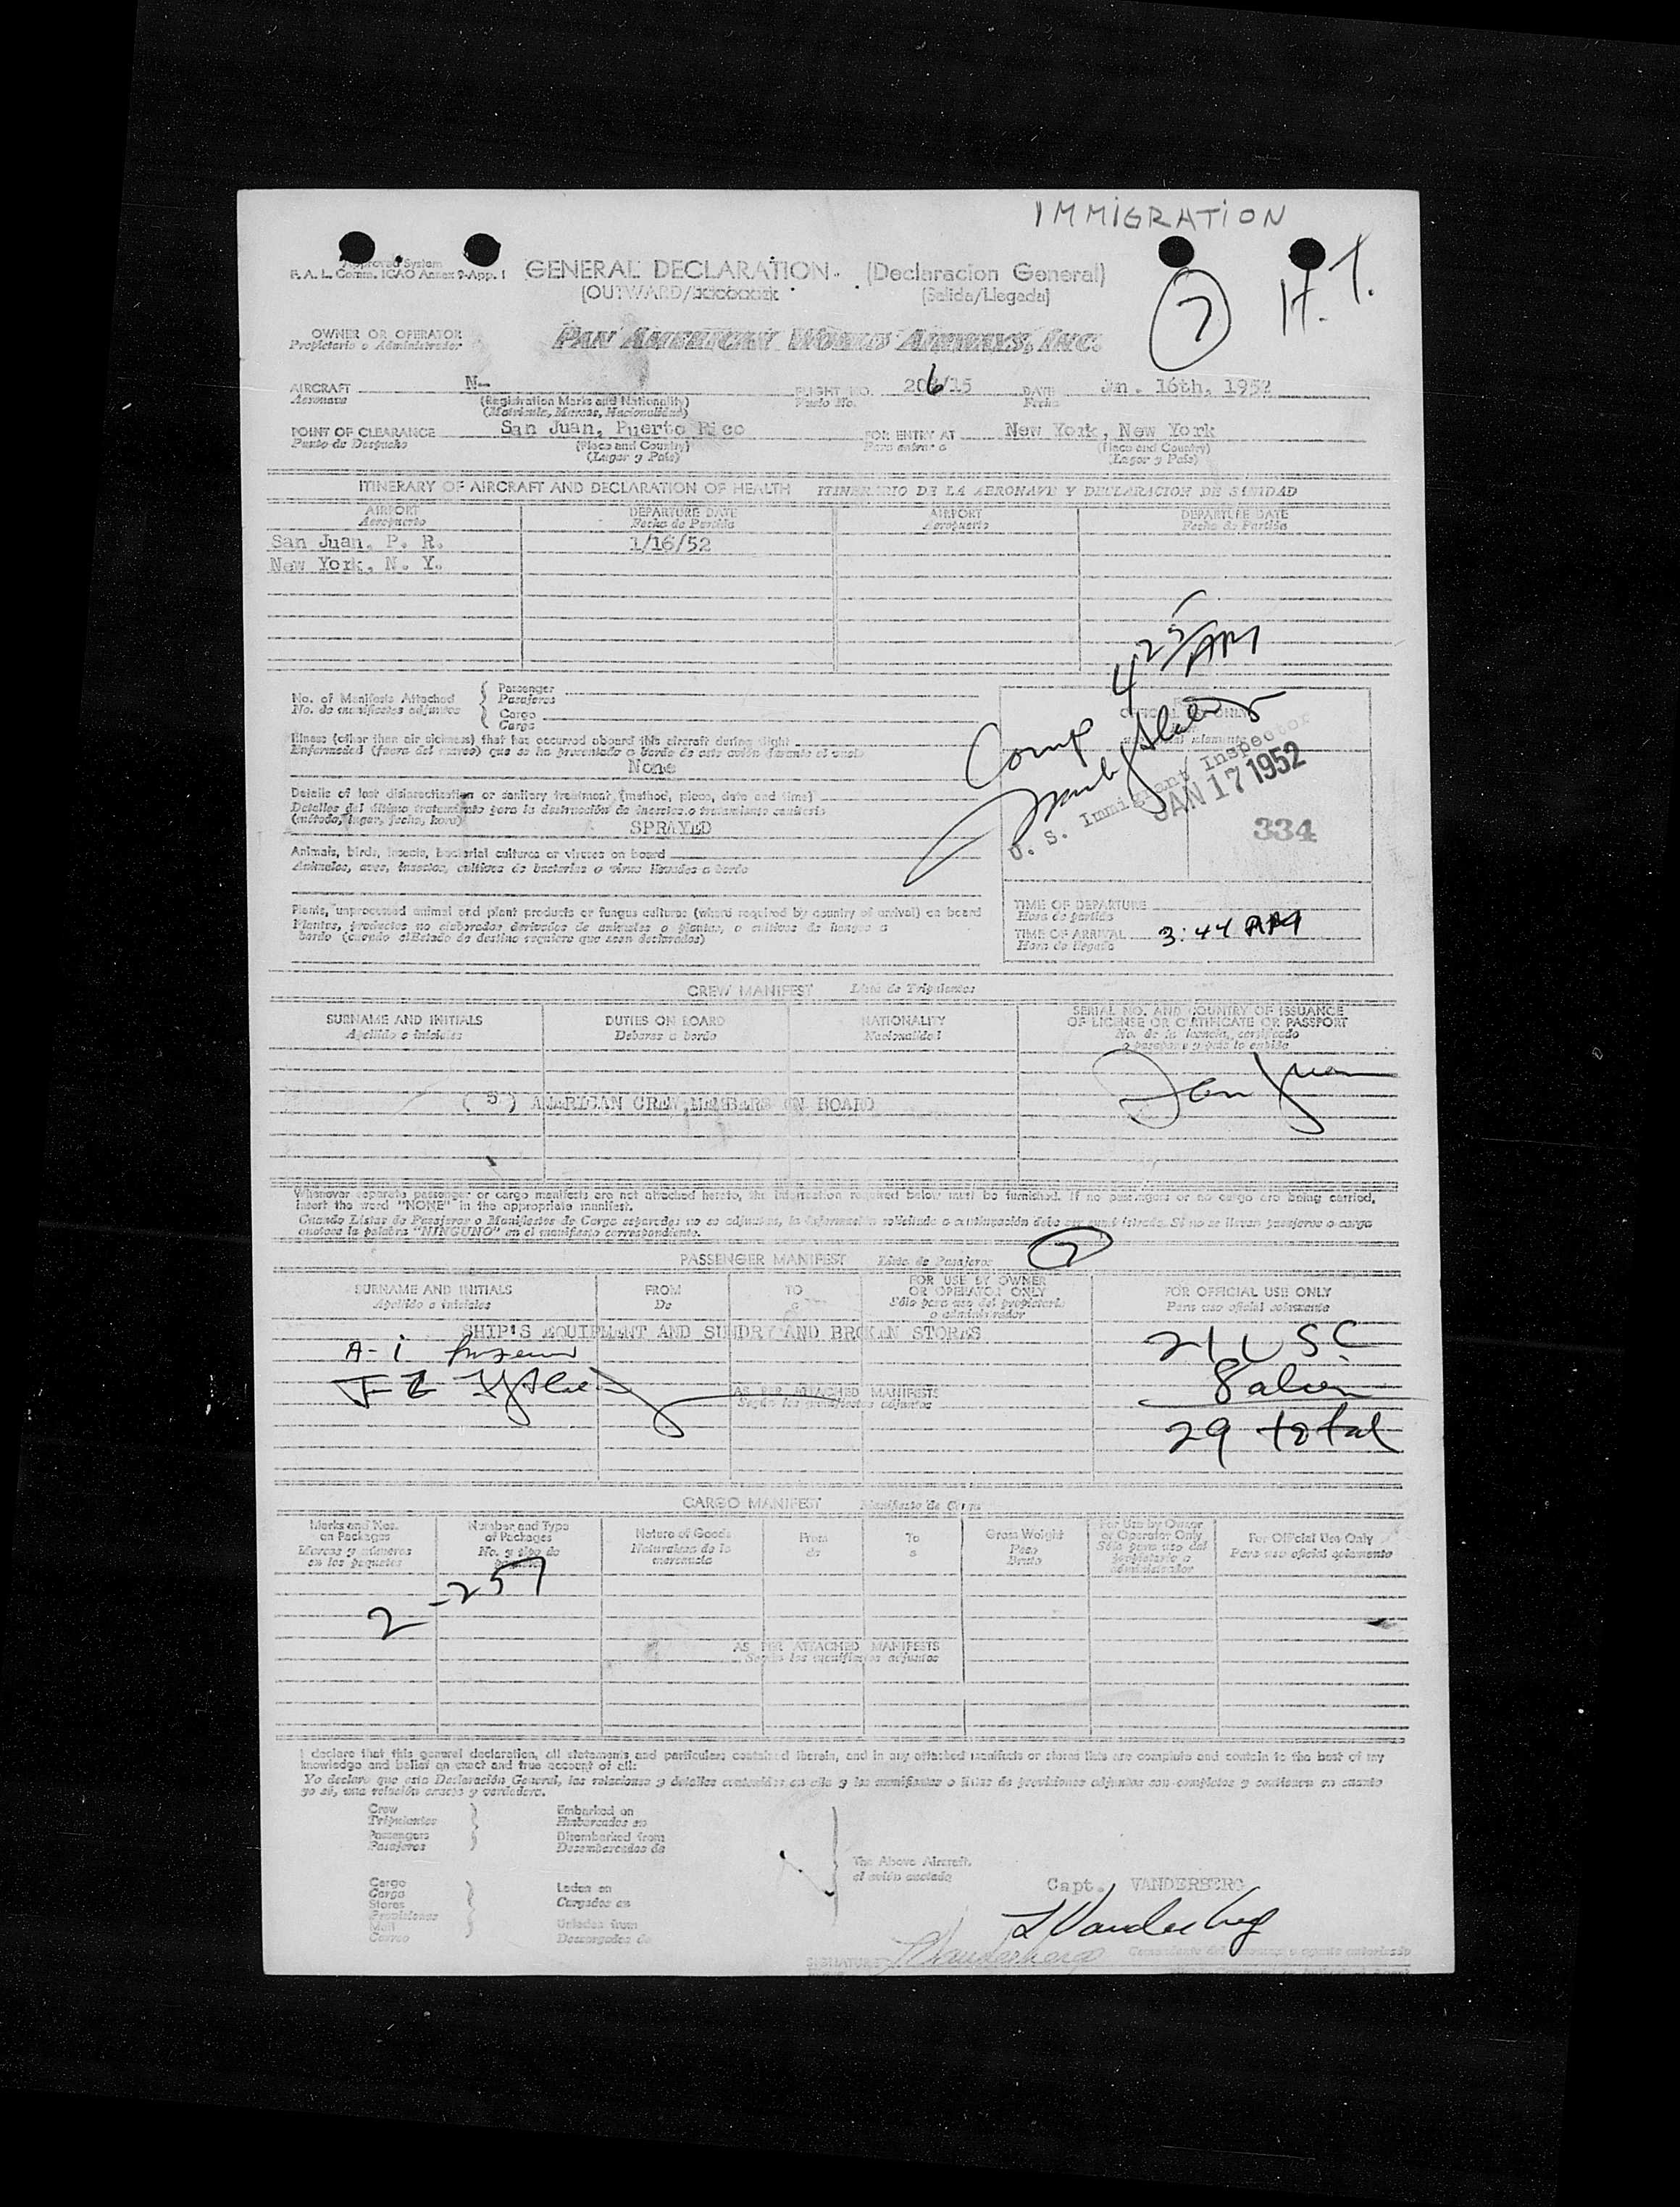 IMMIGRATION
Approved System
F. A. L. Comm. ICAO Annex 9-App. 1
GENERAL DECLARATION. (Declaracion General)
(OUTWARD/ (Salida/Llegada)
7 H. T.
OWNER OR OPERATOR
Propietario o Administrador
PAN AMERICAN WORLD AIRWAYS, INC.
AIRCRAFT N- FLIGHT NO. 206/15 DATE Jan. 16th, 1952
Aeronave (Registration Marks and Nationality) Vuelo No. Fecha
(Matricula, Marcas, Nacionalidad)
POINT OF CLEARANCE San Juan, Puerto Rico FOR ENTRY AT New York, New York
Punto de Despacho (Place and Country) Para entrar a (Place and Country)
(Lugar y País) (Lugar y País)
ITINERARY OF AIRCRAFT AND DECLARATION OF HEALTH ITINERARIO DE LA AERONAVE Y DECLARACION DE SANIDAD
AIRPORT DEPARTURE DATE AIRPORT DEPARTURE DATE
Aeropuerto Fecha de Partida Aeropuerto Fecha de Partida
San Juan, P. R. 1/16/52
New York, N. Y.
4 25 AM
Comp
No. of Manifests Attached Passenger
No. de manifiestos adjuntos Pasajeros
Cargo
Carga
Illness (other than air sickness) that has occurred aboard this aircraft during flight
Enfermedad (fuera del mareo) que se ha presentado a bordo de este avión durante el vuelo
None
Details of last disinsectization or sanitary treatment (method, place, date and time)
Detalles del último tratamiento para la destrucción de insectos o tratamiento sanitario
(método, lugar, fecha, hora)
SPRAYED
U. S. Immigrant Inspector
JAN 17 1952
334
Animals, birds, insects, bacterial cultures or viruses on board
Animales, aves, insectos, cultivos de bacterias o virus llevados a bordo
Plants, unprocessed animal and plant products or fungus cultures (where required by country of arrival) on board
Plantas, productos no elaborados derivados de animales o plantas, o cultivos de hongos a
bordo (cuando el Estado de destino requiere que sean declarados)
TIME OF DEPARTURE
Hora de partida
TIME OF ARRIVAL 3:44 AM
Hora de llegada
CREW MANIFEST Lista de Tripulantes
SURNAME AND INITIALS DUTIES ON BOARD NATIONALITY SERIAL NO. AND COUNTRY OF ISSUANCE
OF LICENSE OR CERTIFICATE OR PASSPORT
Apellido e iniciales Deberes a bordo Nacionalidad No. de la licencia, certificado
o pasaporte y país lo expide
San Juan
( 5 ) AMERICAN CREW MEMBERS ON BOARD
Whenever separate passenger or cargo manifests are not attached hereto, the information required below must be furnished. If no passengers or no cargo are being carried,
insert the word "NONE" in the appropriate manifest.
Cuando Listas de Pasajeros o Manifiestos de Carga separados no se adjuntan, la información solicitada a continuación debe ser suministrada. Si no se llevan pasajeros o carga
coloque la palabra "NINGUNO" en el manifiesto correspondiente.
PASSENGER MANIFEST Lista de Pasajeros 7
SURNAME AND INITIALS FROM TO FOR USE BY OWNER
OR OPERATOR ONLY FOR OFFICIAL USE ONLY
Apellido e iniciales De a Sólo para uso del propietario
o administrador Para uso oficial solamente
SHIP'S EQUIPMENT AND SUNDRY AND BROKEN STORES
21 USC
8 alien
29 total
AS PER ATTACHED MANIFESTS
Según los manifiestos adjuntos
CARGO MANIFEST Manifiesto de Carga
Marks and Nos. on Packages Number and Type of Packages Nature of Goods From To Gross Weight For Use by Owner or Operator Only For Official Use Only
Marcas y números en los paquetes No. y tipo de Naturaleza de la mercancia de a Peso Bruto Sólo para uso del propietario o administrador Para uso oficial solamente
2-257
AS PER ATTACHED MANIFESTS
Según los manifiestos adjuntos
I declare that this general declaration, all statements and particulars contained therein, and in any attached manifests or stores lists are complete and contain to the best of my
knowledge and belief an exact and true account of all:
Yo declaro que esta Declaración General, las relaciones y detalles contenidos en ella y los manifiestos o listas de provisiones adjuntos son completos y contienen en cuanto
yo sé, una relación exacta y verdadera.
Crew Embarked on
Tripulantes Embarcados en
Passengers Disembarked from
Pasajeros Desembarcados de
The Above Aircraft.
el avión anotado
Cargo
Carga Laden on
Stores Cargados en
Provisiones
Mail Unladen from
Correo Descargados de
Capt. VANDERBERG
L Vanderberg
SIGNATURE L Vanderberg